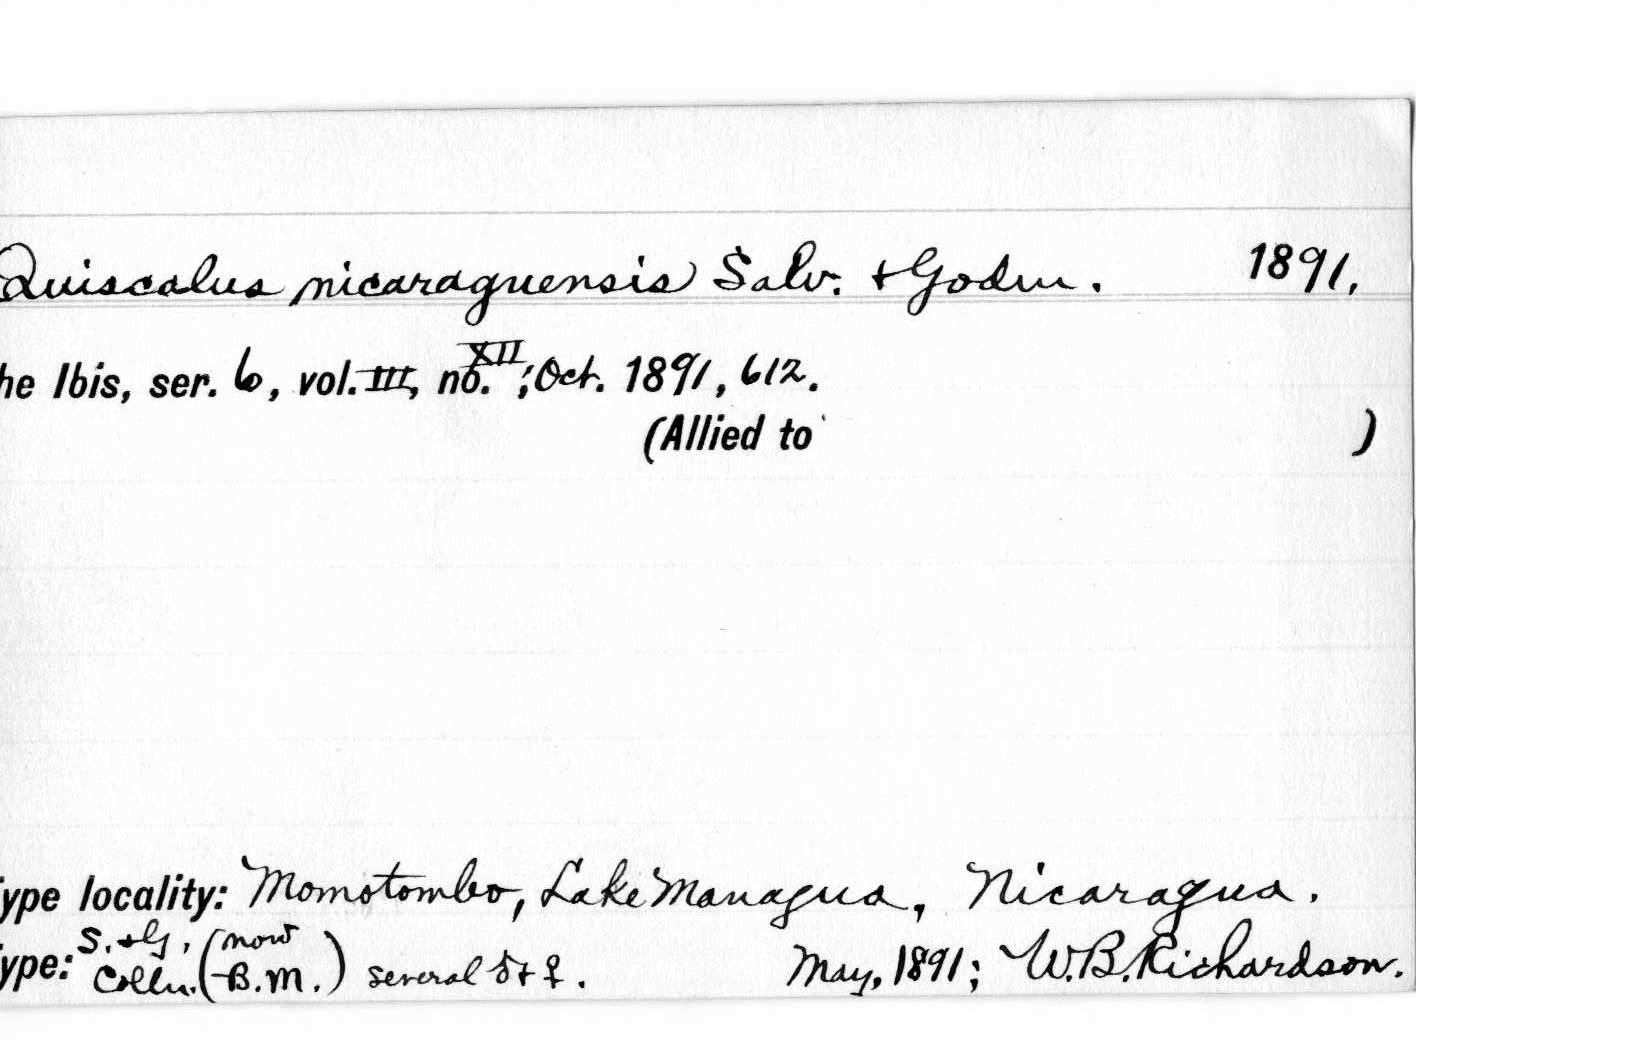 Quiscalus nicaraguensis Salv. & Godm. 1891.
he Ibis, ser. 6, vol. III, no. XII; Oct. 1891, 612.
(Allied to )
ype locality: Momotombo, Lake Managua, Nicaragua.
ype: S. & G. Colln. (now B.M.) several ♂ & ♀. May, 1891; W.B. Richardson.